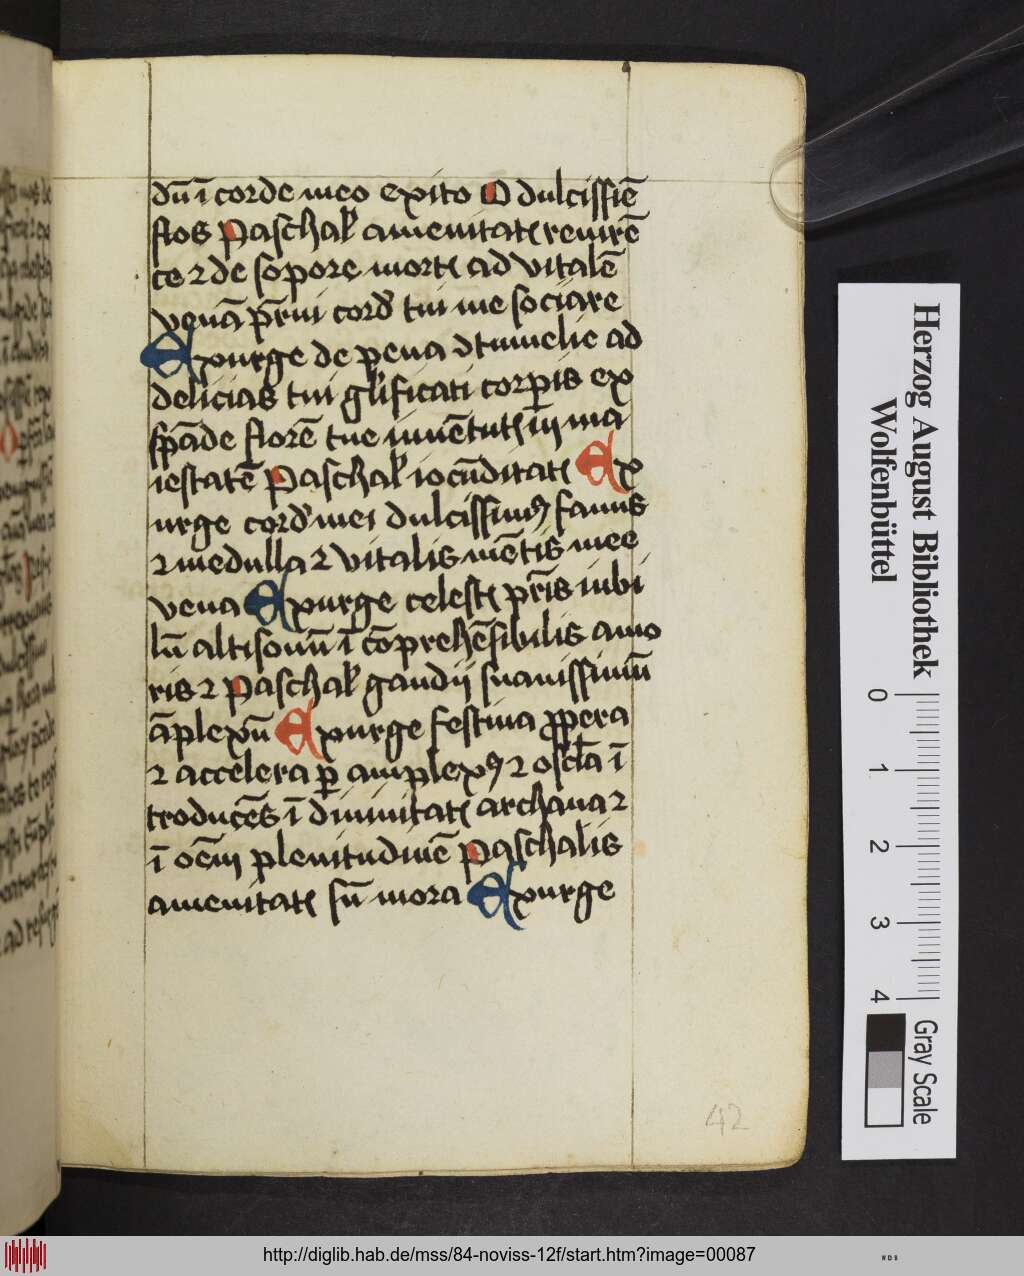 dū ī corde meo exito O dulcissiē
flos Paschal amenitatis reuirē
ce ꝛ de sopore mortis ad vitalē
venā p̄rni cordis tui me sociare
Expurge de pena ↄtumelie ad
delicias tui glificati corpis ex
spā de florē tue iuuētutis iij ma
iestatē Paschal iocūditatis Ex
urge cordis mei dulcissimꝰ fauus
ꝛ medulla ꝛ vitalis mētis mee
vena Exurge celestis p̄ris iubi
lū altisonū ī cōprehēsibilis amo
ris ꝛ Paschal gaudij suauissimū
āplexū Exurge festina ꝓpera
ꝛ accelera ꝑ amplexꝰ ꝛ oscła ī
troducēs ī diuinitatis archana ꝛ
ī oēm plenitudinē Paschalis
amenitatis sn̄ mora Exurge
42
Herzog August Bibliothek
Wolfenbüttel
0 1 2 3 4
Gray Scale
http://diglib.hab.de/mss/84-noviss-12f/start.htm?image=00087